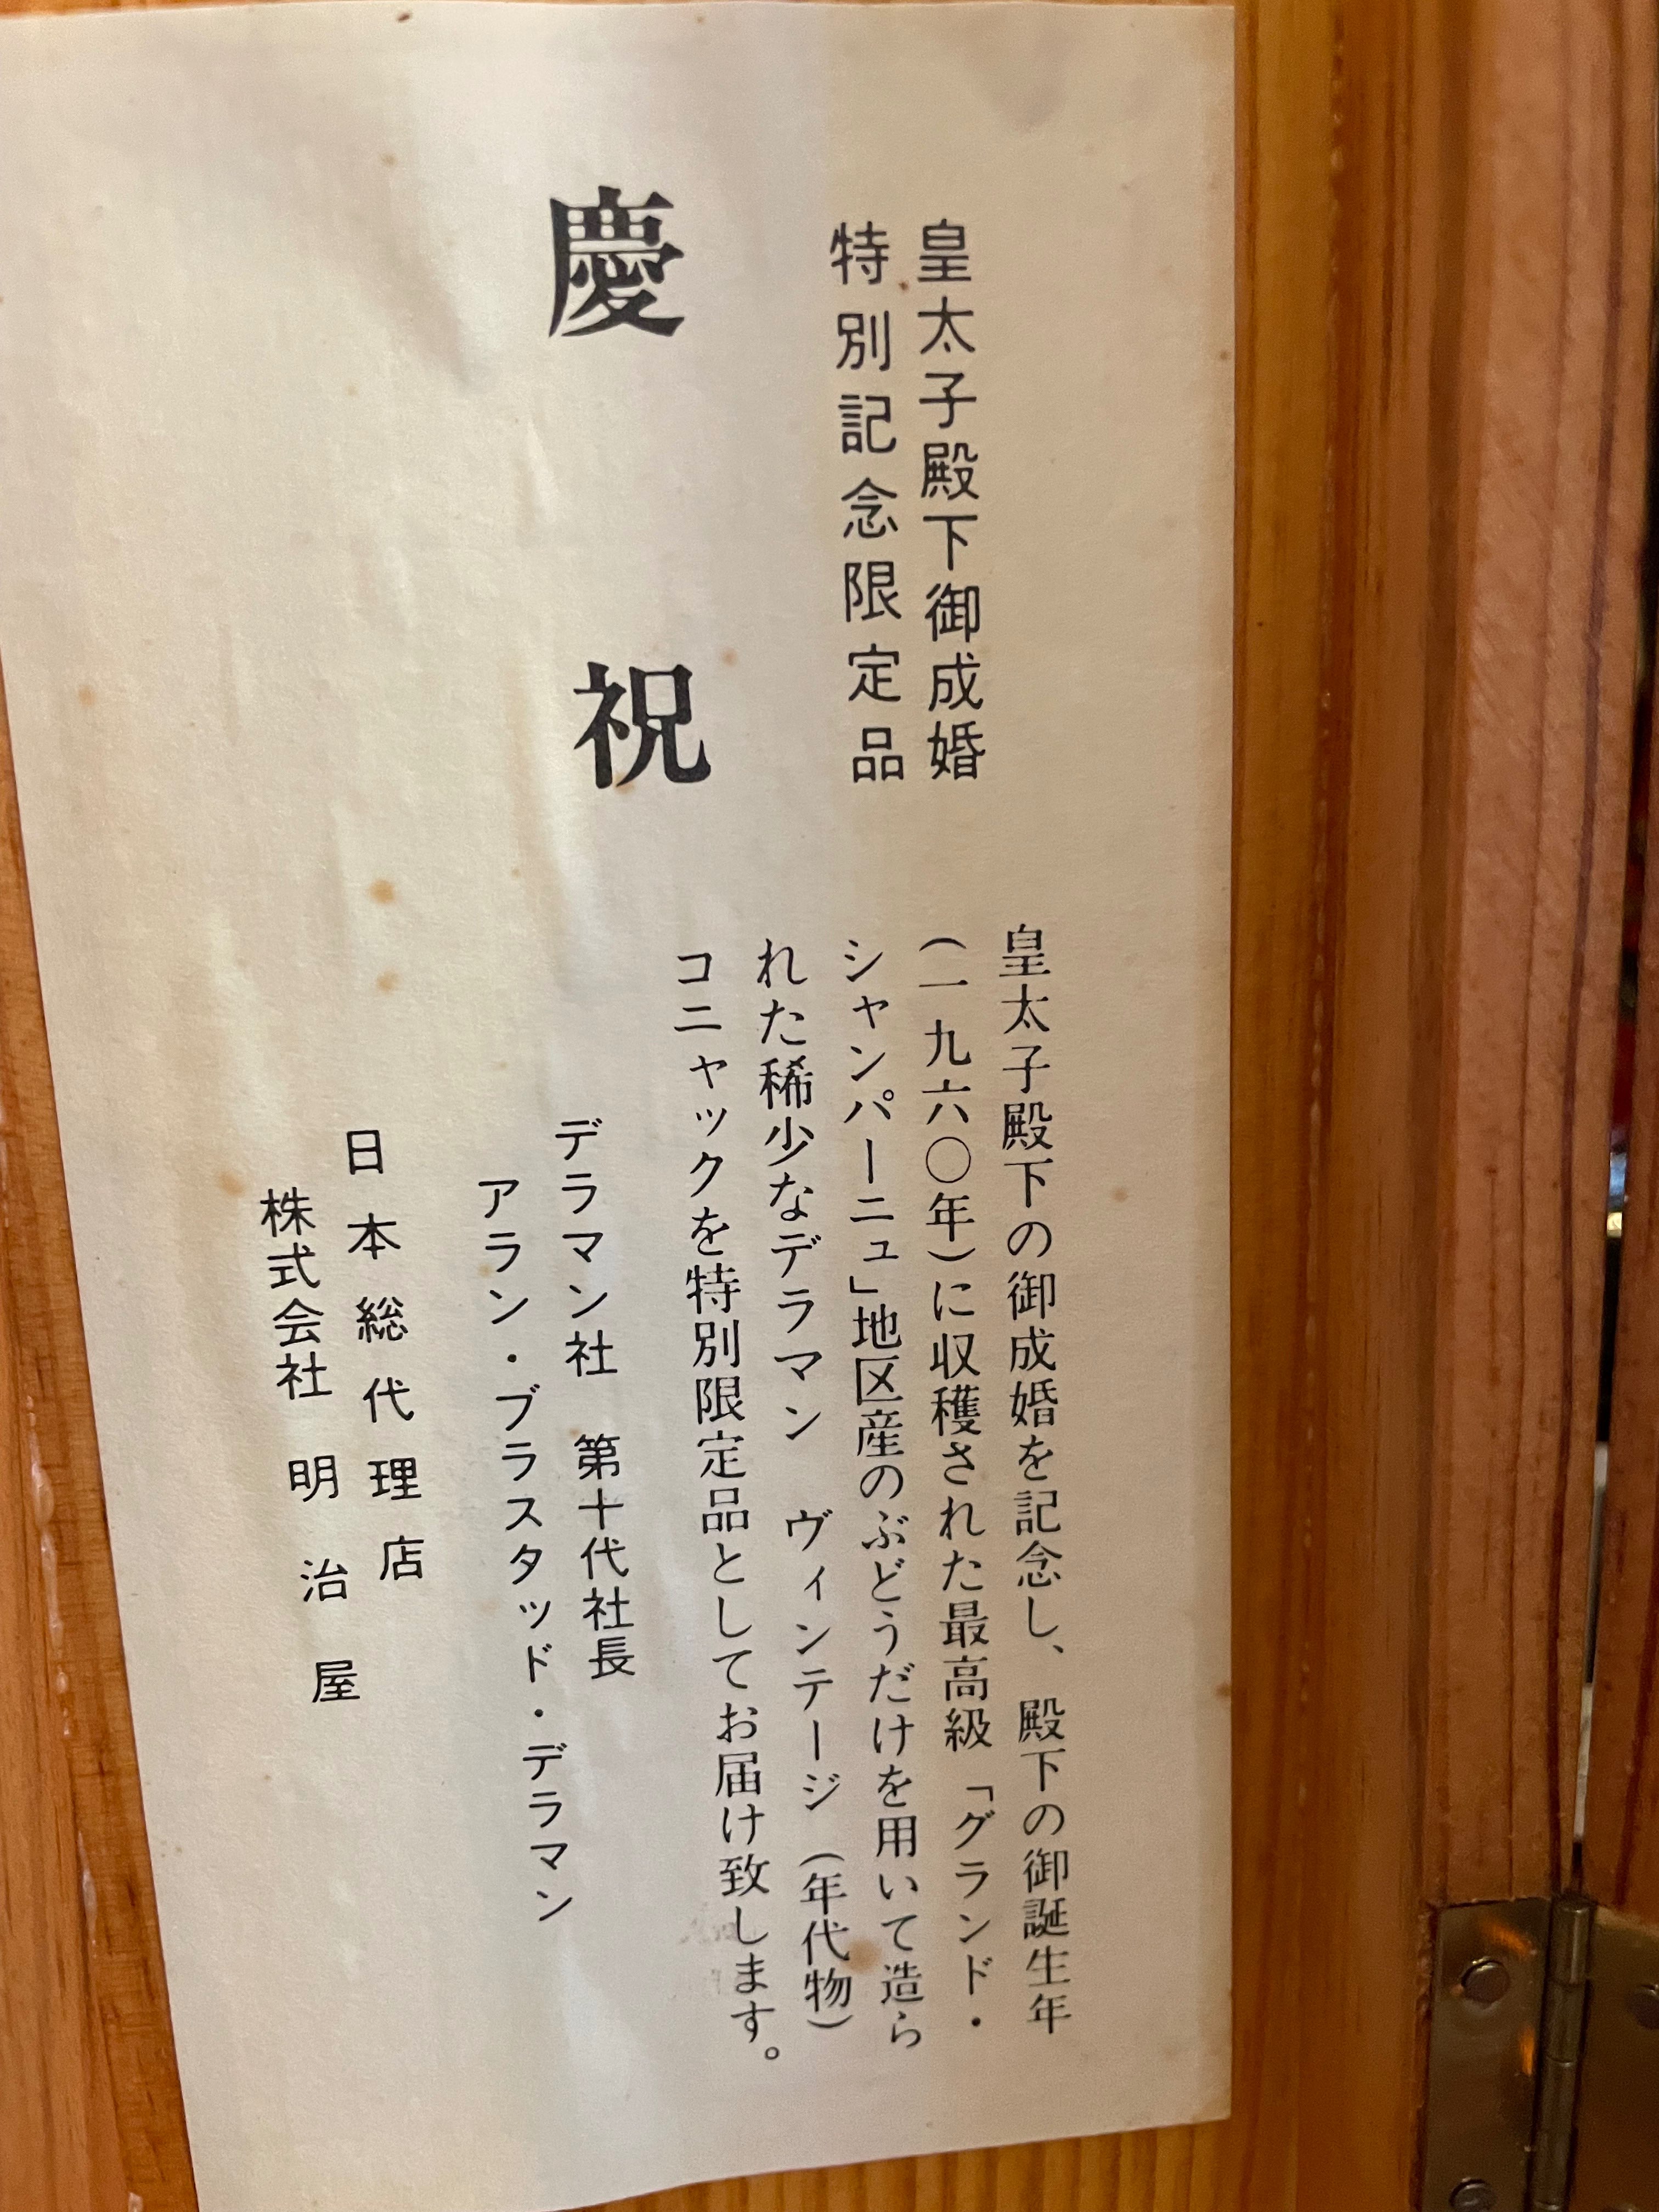 皇太子殿下御成婚
特別記念限定品
慶祝
皇太子殿下の御成婚を記念し、殿下の御誕生年
（一九六〇年）に収穫された最高級「グランド・
シャンパーニュ」地区産のぶどうだけを用いて造ら
れた稀少なデラマン ヴィンテージ（年代物）
コニャックを特別限定品としてお届け致します。
デラマン社 第十代社長
アラン・ブラスタッド・デラマン
日本総代理店
株式会社 明治屋